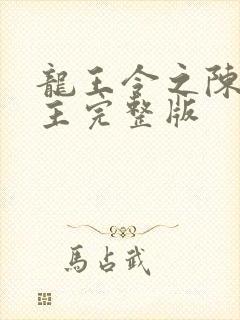 龍王令之陳
王完整版
馬占武